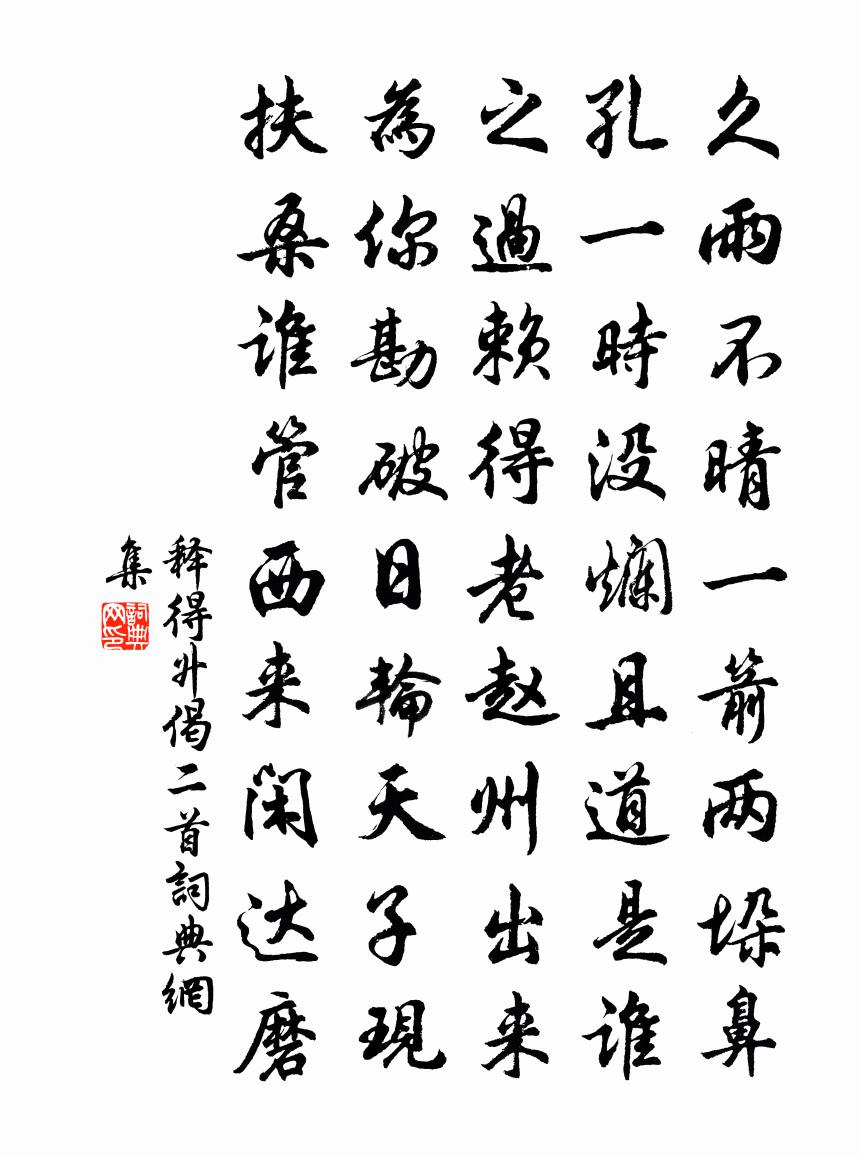 久雨不晴一箭两垛鼻
孔一時没爛且道是谁
之過赖得老赵州出来
為你勘破日輪天子現
扶桑谁管西来閑达磨
释得升偈二首詞典網
集
詞典网印